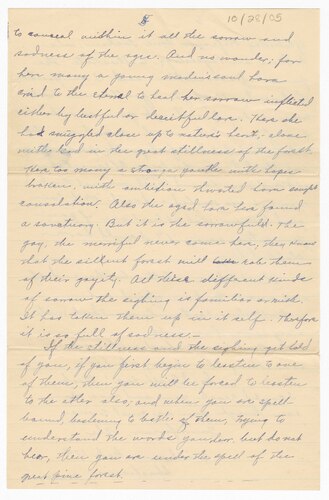 4
10/28/05
to conceal within it all the sorrow and
sadness of the ages. And no wonder; for
here many a young maiden's soul have
cried to the eternal to heal her sorrow inflicted
either by lustful or deceitful love. Here she
had snuggled close up to nature's heart, alone
with God in the great stillness of the forest.
Here too many a strong youth with hopes
broken, with ambition thwarted have sought
consolation. Also the aged have here found
a sanctuary. But it is the sorrowful. The
gay, the merriful never come here, they know
that the silent forest will rob them
of their gayity. All these different kinds
of sorrow the sighing is familiar with.
It has taken them up in it self. Therefore
it is so full of sadness.—
If the stillness and the sighing get hold
of you, if you first begin to leasten to one
of them, then you will be forced to leasten
to the other also, and when you are spell
bound, leastening to both of them, trying to
understand the words you hear but do not
hear, then you are under the spell of the
great pine forest.